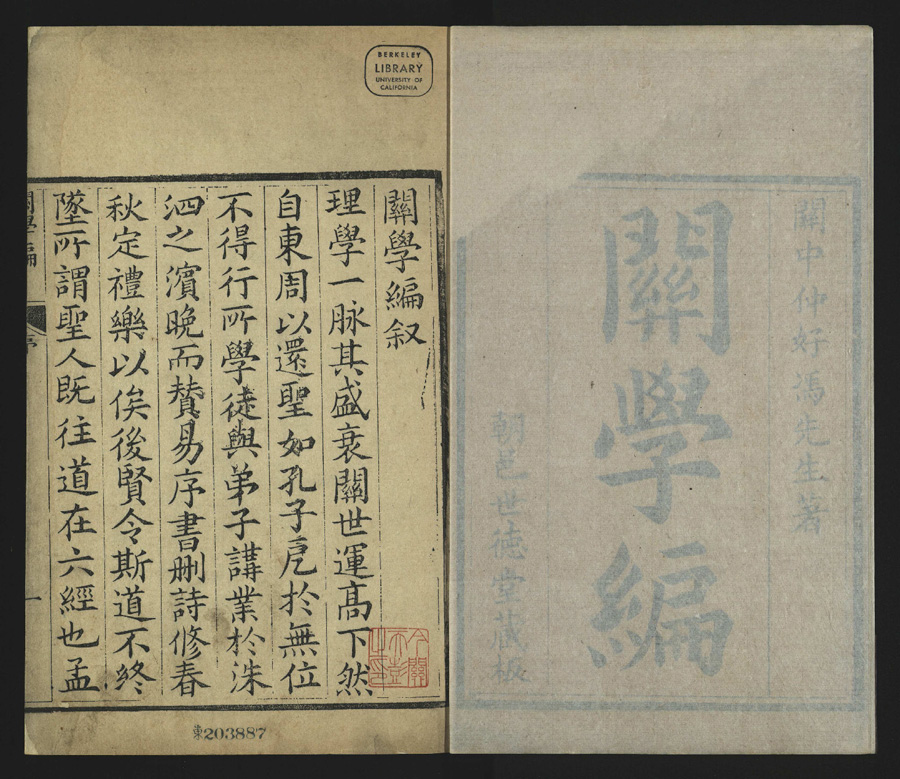 關中仲好馮先生著
關學編
朝邑世徳堂藏板
BERKELEY
LIBRARY
UNIVERSITY OF
CALIFORNIA
關學編叙
理學一脉其盛衰關世運髙下然
自東周以還聖如孔子戹於無位
不得行所學徒與弟子講業於洙
泗之濱晚而賛易序書删詩修春
秋定禮樂以俟後賢令斯道不終
墜所謂聖人既往道在六經也孟
關學編
序
一
東203887